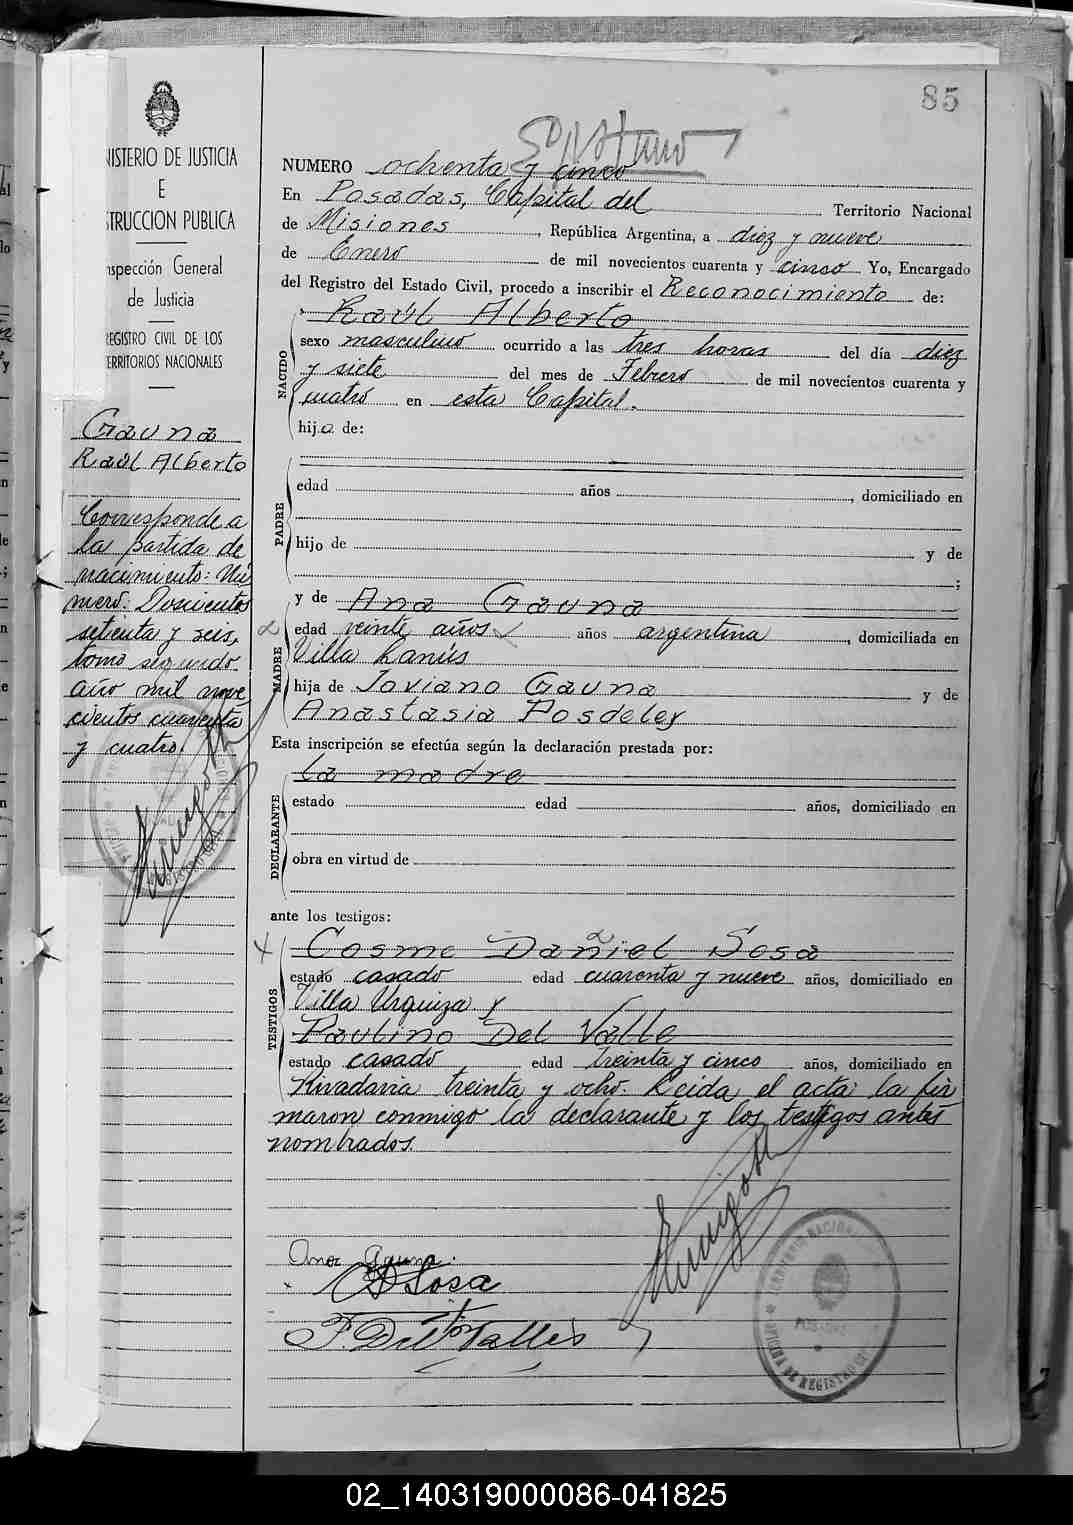 85
NUMERO ochenta y cinco
En Posadas, Capital del Territorio Nacional
de Misiones, República Argentina, a diez y nueve
de Enero de mil novecientos cuarenta y cinco Yo, Encargado
del Registro del Estado Civil, procedo a inscribir el Reconocimiento de:
NACIDO
Raúl Alberto
sexo masculino ocurrido a las tres horas del día diez
y siete del mes de Febrero de mil novecientos cuarenta y
cuatro en esta Capital.
hijo de:
PADRE
edad años , domiciliado en
hijo de y de
;
MADRE
y de Ana Gauna
edad veinte años años argentina, domiciliada en
Villa Lanús
hija de Joviano Gauna y de
Anastasia Posdeley
Esta inscripción se efectúa según la declaración prestada por:
DECLARANTE
La madre
estado edad años, domiciliado en
obra en virtud de
ante los testigos:
TESTIGOS
Cosme Daniel Sosa
estado casado edad cuarenta y nueve años, domiciliado en
Villa Urquiza y
Paulino Del Valle
estado casado edad treinta y cinco años, domiciliado en
Rivadavia treinta y ocho. Leida el acta la fir
maron conmigo la declarante y los testigos antes
nombrados.
Gauna.
Sosa
NISTERIO DE JUSTICIA
E
STRUCCION PUBLICA
nspección General
de Justicia
REGISTRO CIVIL DE LOS
ERRITORIOS NACIONALES
Gauna
Raúl Alberto
Corresponde a
la partida de
nacimiento: Nú
mero. Doscientos
setenta y seis,
tomo segundo
año mil nove
cientos cuarenta
y cuatro.
TERRITORIO NACIONAL
POSADAS
OFICINA DE REGISTRO
02_140319000086-041825